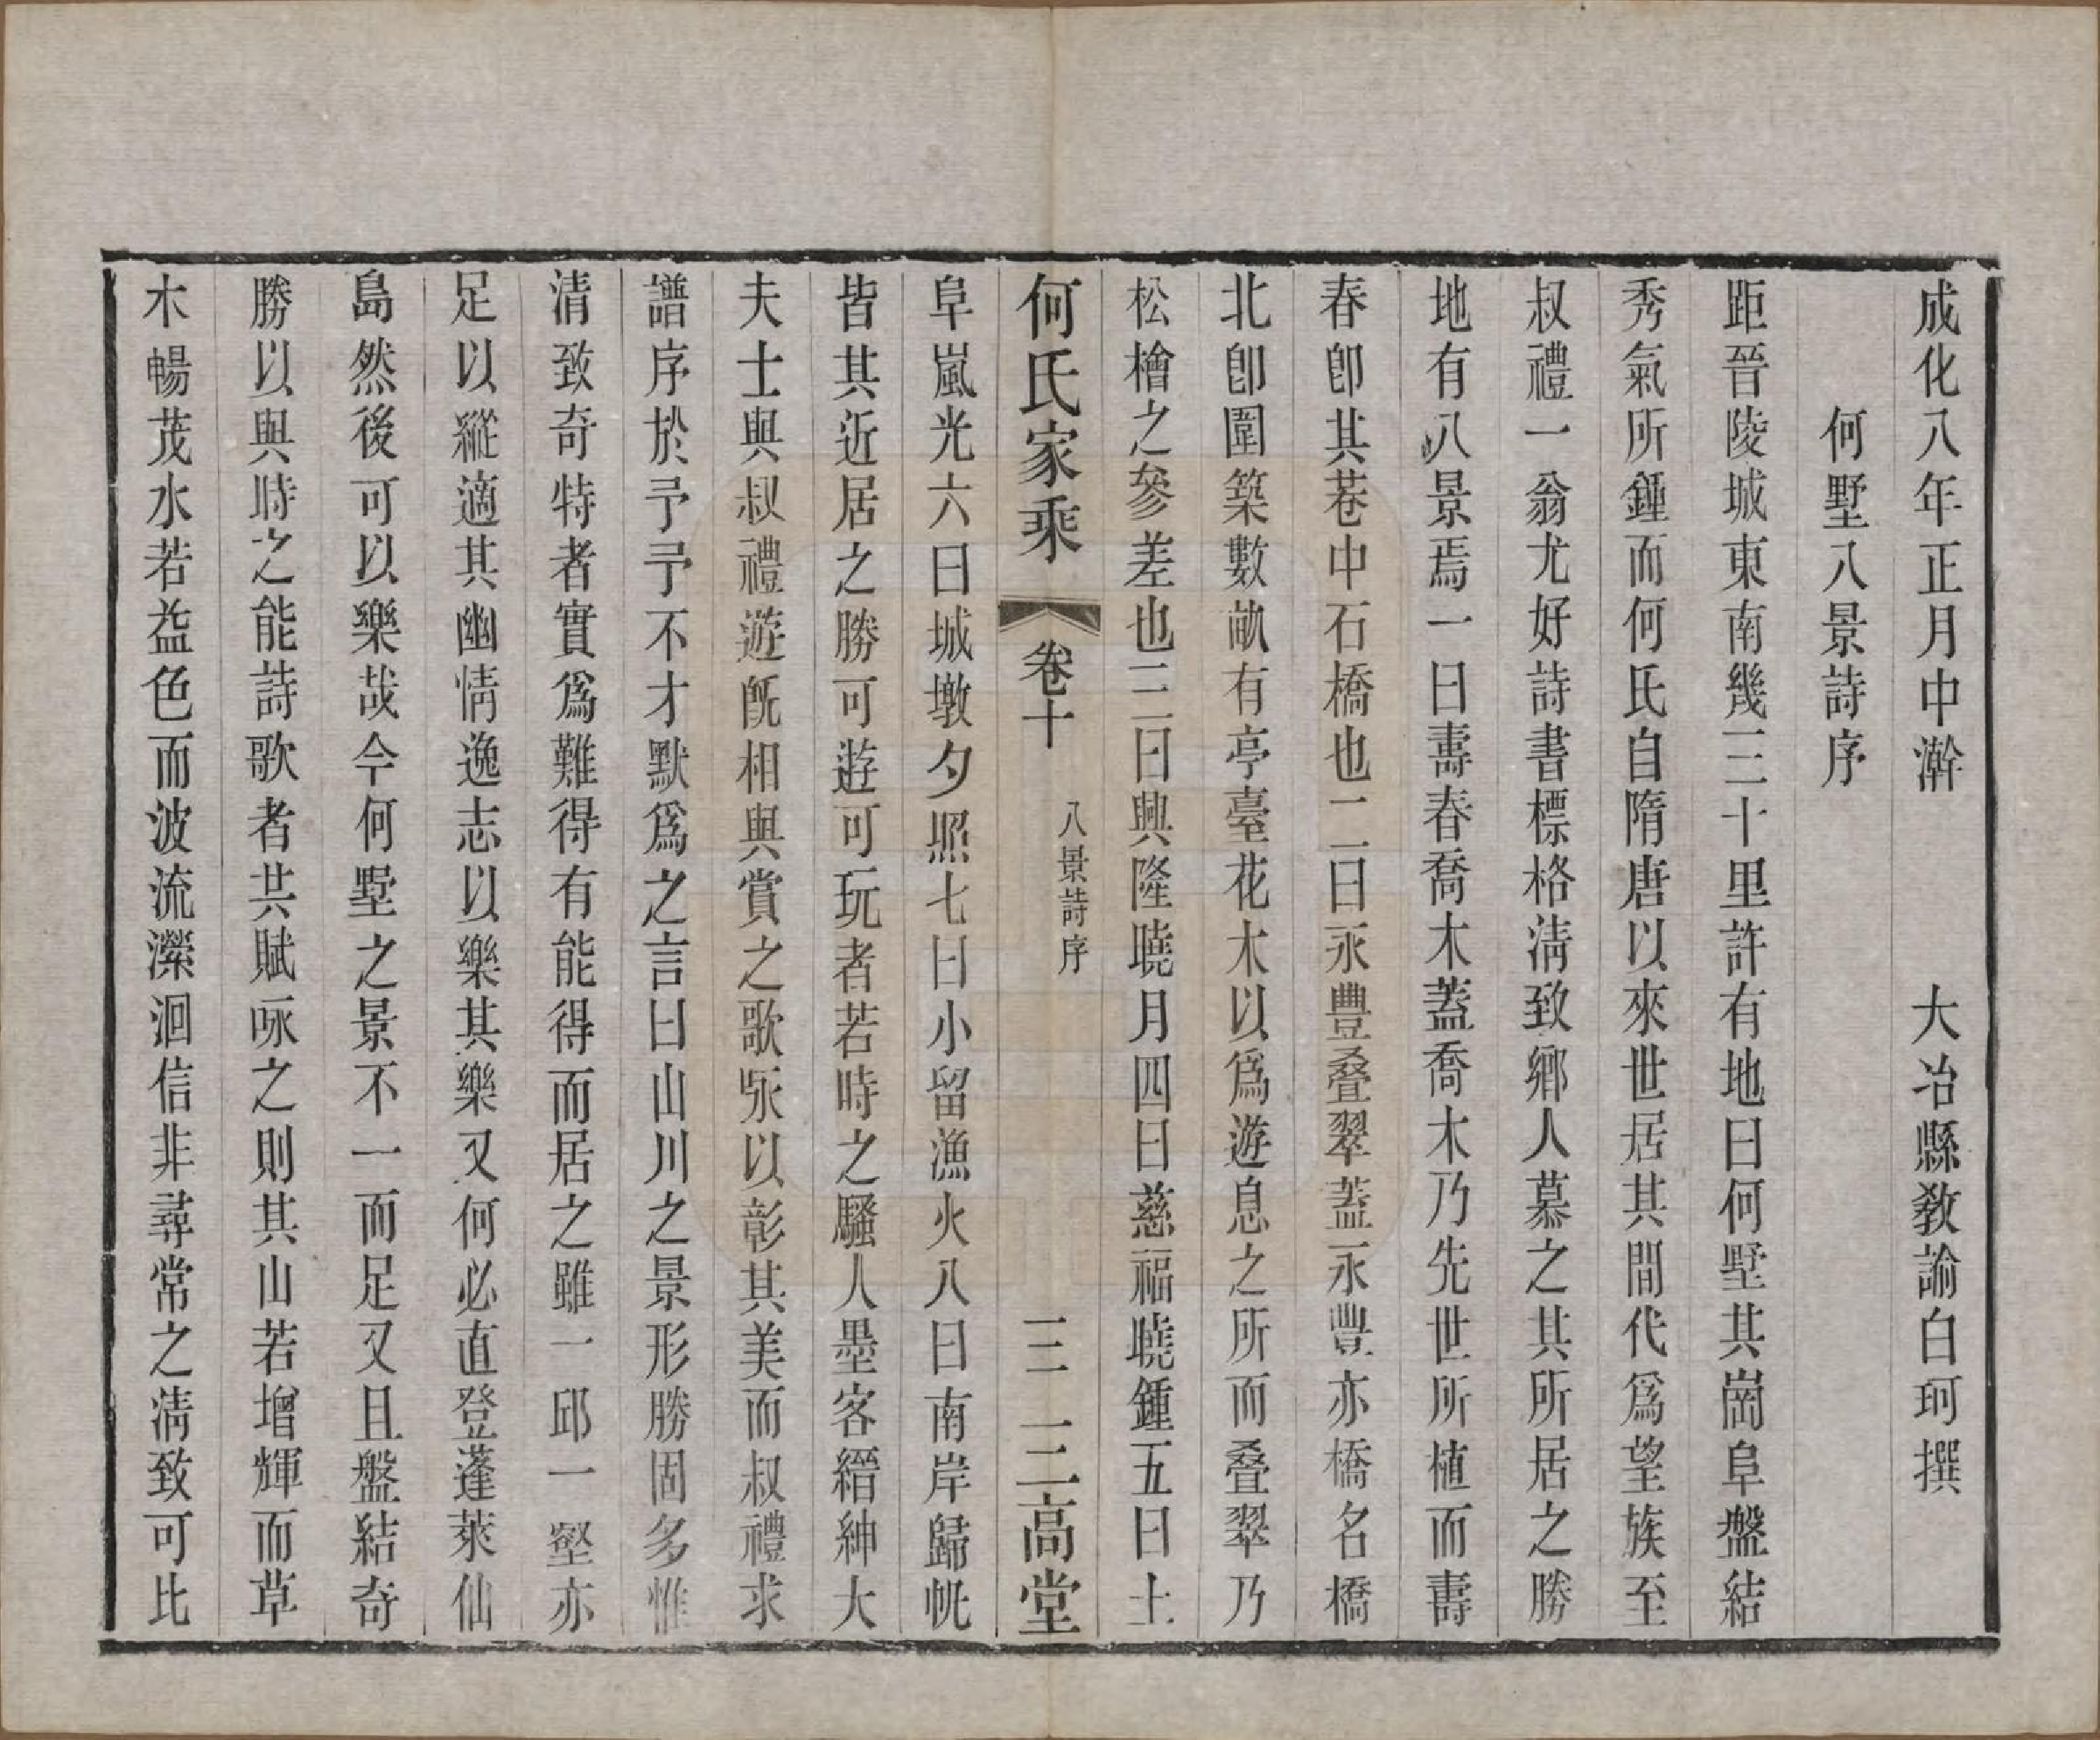 成化八年正月中澣　大冶縣敎諭白珂撰
何墅八景詩序
距晉陵城東南幾三十里許有地曰何墅其崗阜盤結
秀氣所鍾而何氏自隋唐以來世居其間代爲望族至
叔禮一翁尤好詩書標格淸致鄉人慕之其所居之勝
地有八景焉一曰壽春喬木蓋喬木乃先世所植而壽
春卽其巷中石橋也二曰永豐叠翠蓋永豐亦橋名橋
北卽圍築數畝有亭臺花木以爲遊息之所而叠翠乃
松檜之參差也三曰興隆曉月四曰慈福曉鍾五曰土
何氏家乘　卷十　八景詩序　三　三高堂
阜嵐光六曰城墩夕照七曰小留漁火八曰南岸歸帆
皆其近居之勝可遊可玩者若時之騷人墨客縉紳大
夫士與叔禮遊旣相與賞之歌咏以彰其美而叔禮求
譜序於予予不才默爲之言曰山川之景形勝固多惟
清致奇特者實爲難得有能得而居之雖一邱一壑亦
足以縱適其幽情逸志以樂其樂又何必直登蓬萊仙
島然後可以樂哉今何墅之景不一而足又且盤結奇
勝以與時之能詩歌者共賦咏之則其山若增輝而草
木暢茂水若益色而波流濚洄信非尋常之淸致可比